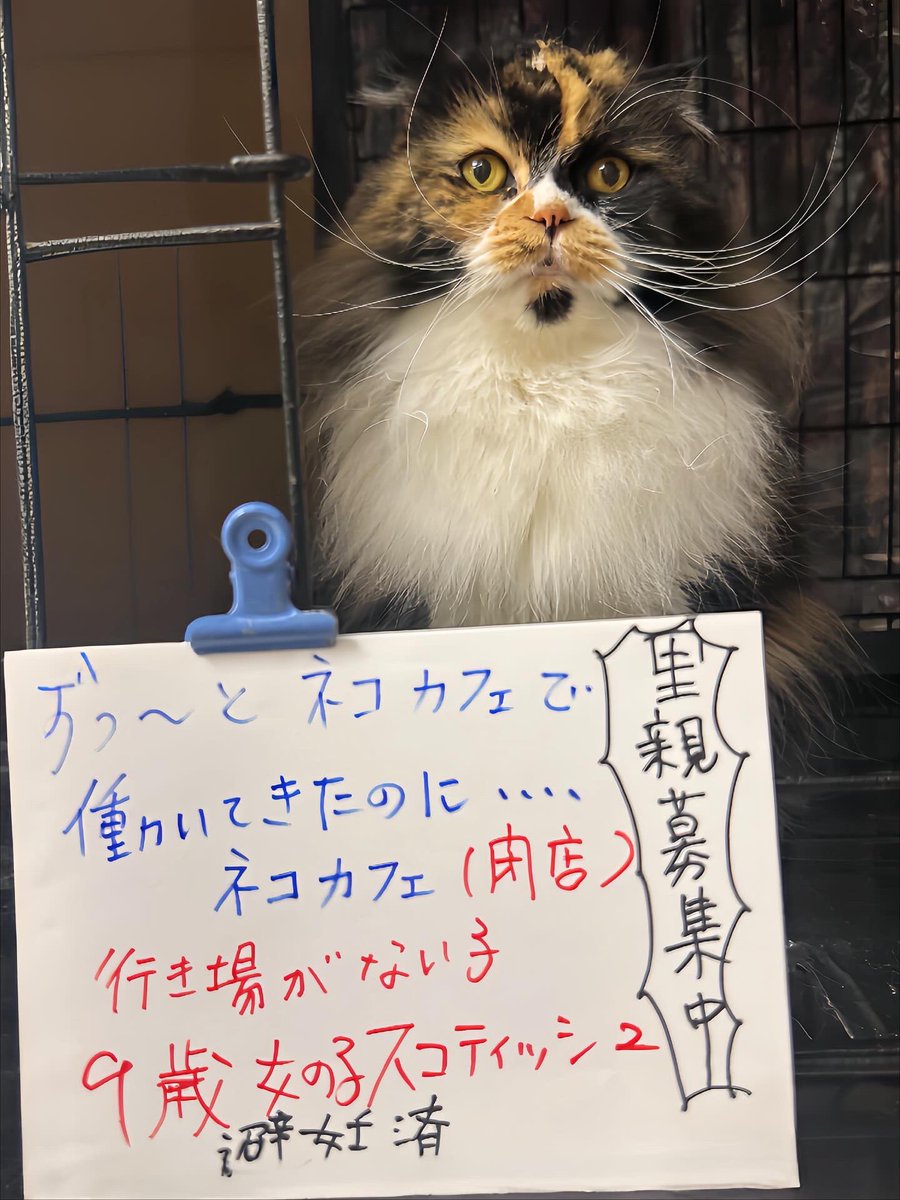 里親募集中
ずっ〜と ネコカフェで
働いてきたのに・・・・
ネコカフェ(閉店)
行き場がない子
9歳 女の子スコティッシュ
避妊済